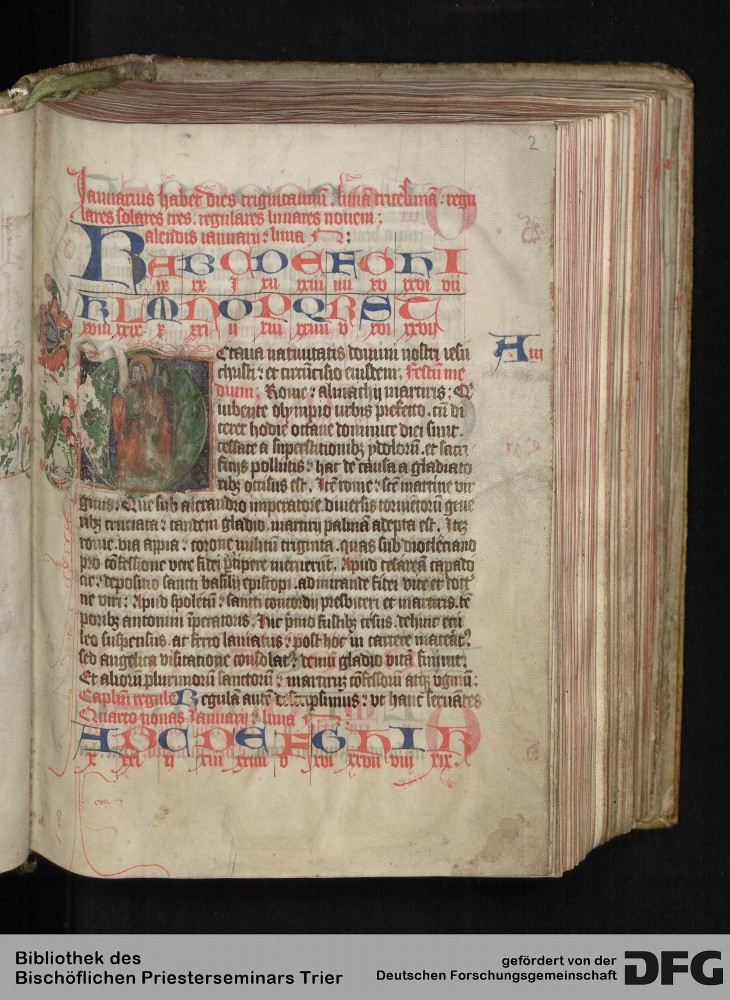 2
Januarius habet dies triginta unum luna tricesima regu
lares solares tres. regulares lunares novem;
Kalendis ianuarij luna
A B C D E F G H I
ix xx j xij xxiii iiii xv xxvi vii
K L M N O P Q R S T
xviii xxix x xxi ii xiii xxiiii v xvi xxvii
Octaua natiuitatis domini nostri iesu
christi et circuncisio eiusdem. Festum me
dium; Rome almachij martiris; Q
iubente olympio urbis prefecto. cū di
ceret hodie octaue dominice diei sunt.
cessate a superstitionibz ydolorū. et sacri
ficijs pollutis hac de causa a gladiato
ribz occisus est. Itē rome scē martine vir
ginis. Que sub alexandro imperatore diuersis tormētorū gene
ribz cruciata tandem gladio martirij palmā adepta est. Itez
rome. via appia corone militū triginta. quas sub diocleciano
pro cōfessione vere fidei ꝑcipere meruerūt. Apud cesaream capado
cie depositio sancti basilij episcopi. admirande fidei vite et doctri
ne viri; Apud spoletū sancti concordij presbiteri et martiris. tē
poribz antonini īperatoris; Hic p̄mo fustibz cesus. dehinc ecu
leo suspensus. ac ferro laniatus post hoc in carcere macerat⁹
sed angelica visitatione consolat⁹ demū gladio vitā finiuit.
Et aliorū plurimorū sanctorū martirū cōfessorū atqz v̄ginū;
Caplm regule Regula autē descripsimus vt hanc seruātes
Quarto nonas Januarij luna
A B C D E F G H I K
x xxi ij xiii xxiiii v xvi xxvii viii xix
A iii
Bibliothek des
Bischöflichen Priesterseminars Trier
gefördert von der
Deutschen Forschungsgemeinschaft
DFG